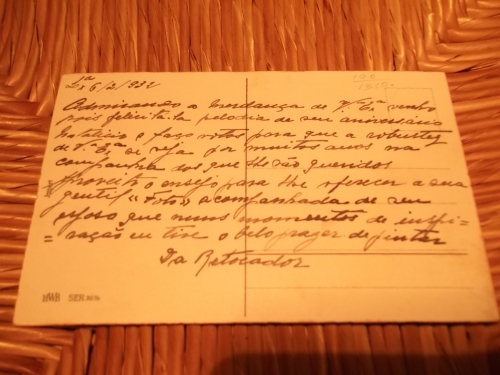 Lª
26/2/932
Admirando a mudança de V. Eª venho
pois felicitá-la pelo dia de seu aniversário
Natalício e faço votos para que a robustez
de V. Eª se veja por muitos anos na
companhia dos que lhe são queridos
Aproveito o ensejo para lhe oferecer a sua
gentil "foto" acompanhada de seu
esposo que nuns momentos de inspi-
=ração eu tive o belo prazer de pintar
Retocador
SER.